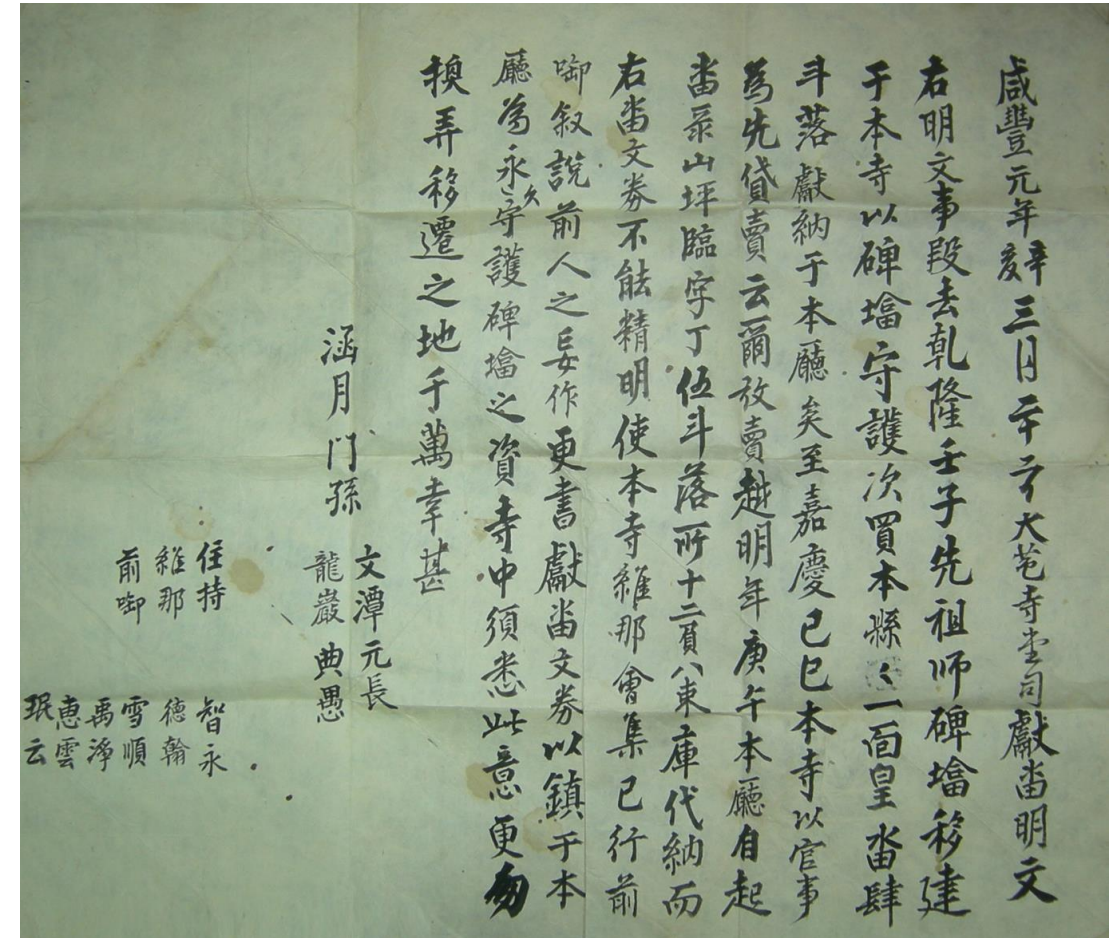 咸豐元年辛亥三月二十六日大芚寺堂司獻畓明文
右明文事段去乹隆壬子先祖师碑墖移建
于本寺以碑墖守護次買本縣〻一面皇畓肆
斗落獻納于本廳矣至嘉慶己巳本寺以官事
爲先貸賣云爾放賣越明年庚午本廳自起
畓彔山坪臨字丁伍斗落所十二負八束庫代納而
右畓文券不能精明使本寺維那會集已行前
啣叙說前人之妄作更書獻畓文券以鎮于本
廳爲永久守護碑墖之資寺中須悉此意更勿
换弄移遷之地千萬幸甚
涵月門孫
文潭元長
龍巖典愚
住持 智永
維那 德翰
前啣 雪順
禹淨
恵雲
珉云